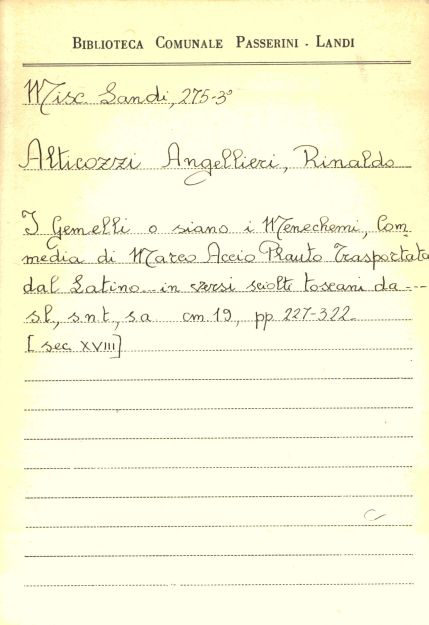 BIBLIOTECA COMUNALE PASSERINI - LANDI
Misc. Landi, 275-3°
Alticozzi Angellieri, Rinaldo
I Gemelli o siano i Menechemi, Com
media di Marco Accio Plauto Trasportata
dal Latino in versi sciolti toscani da ---
s.l., s.n.t., s.a cm 19, pp 227-322
[sec XVIII]